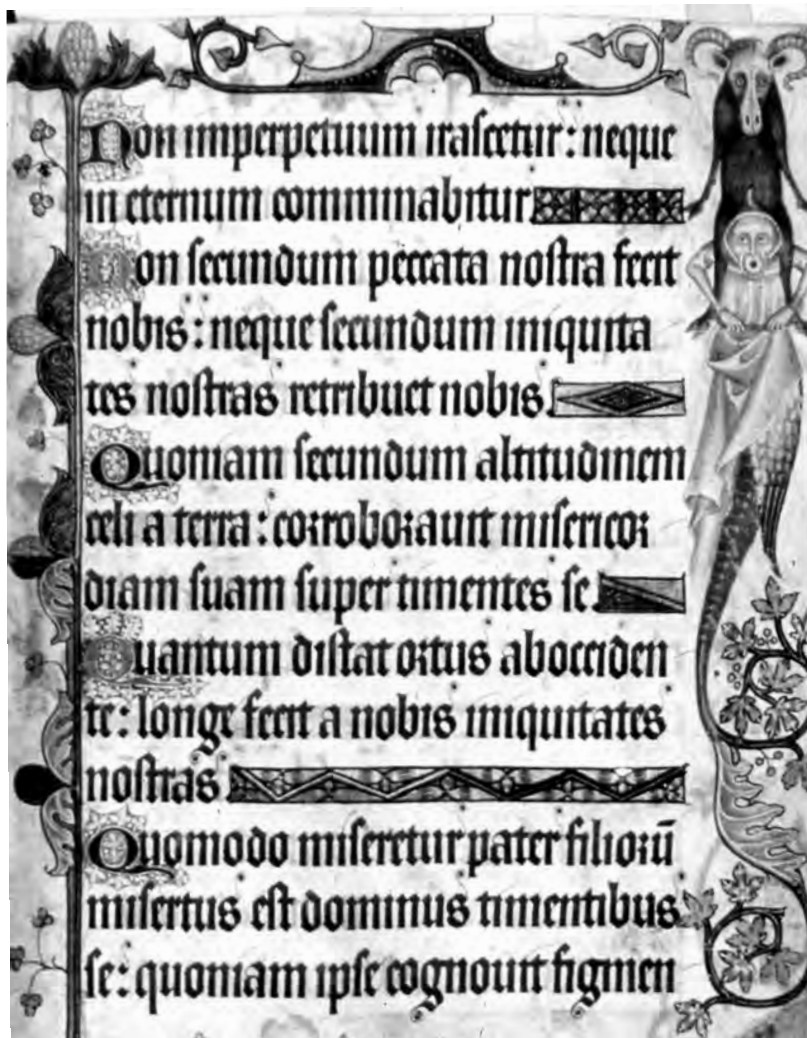 Non imperpetuum irascetur: neque
in eternum comminabitur.
Non secundum peccata nostra fecit
nobis: neque secundum iniquita
tes nostras retribuet nobis.
Quoniam secundum altitudinem
celi a terra: corroborauit misericor
diam suam super timentes se.
Quantum distat ortus aboccidente
te: longe fecit a nobis iniquitates
nostras.
Quomodo miseretur pater filiorū
misertus est dominus timentibus
se: quoniam ipse cognouit figmen